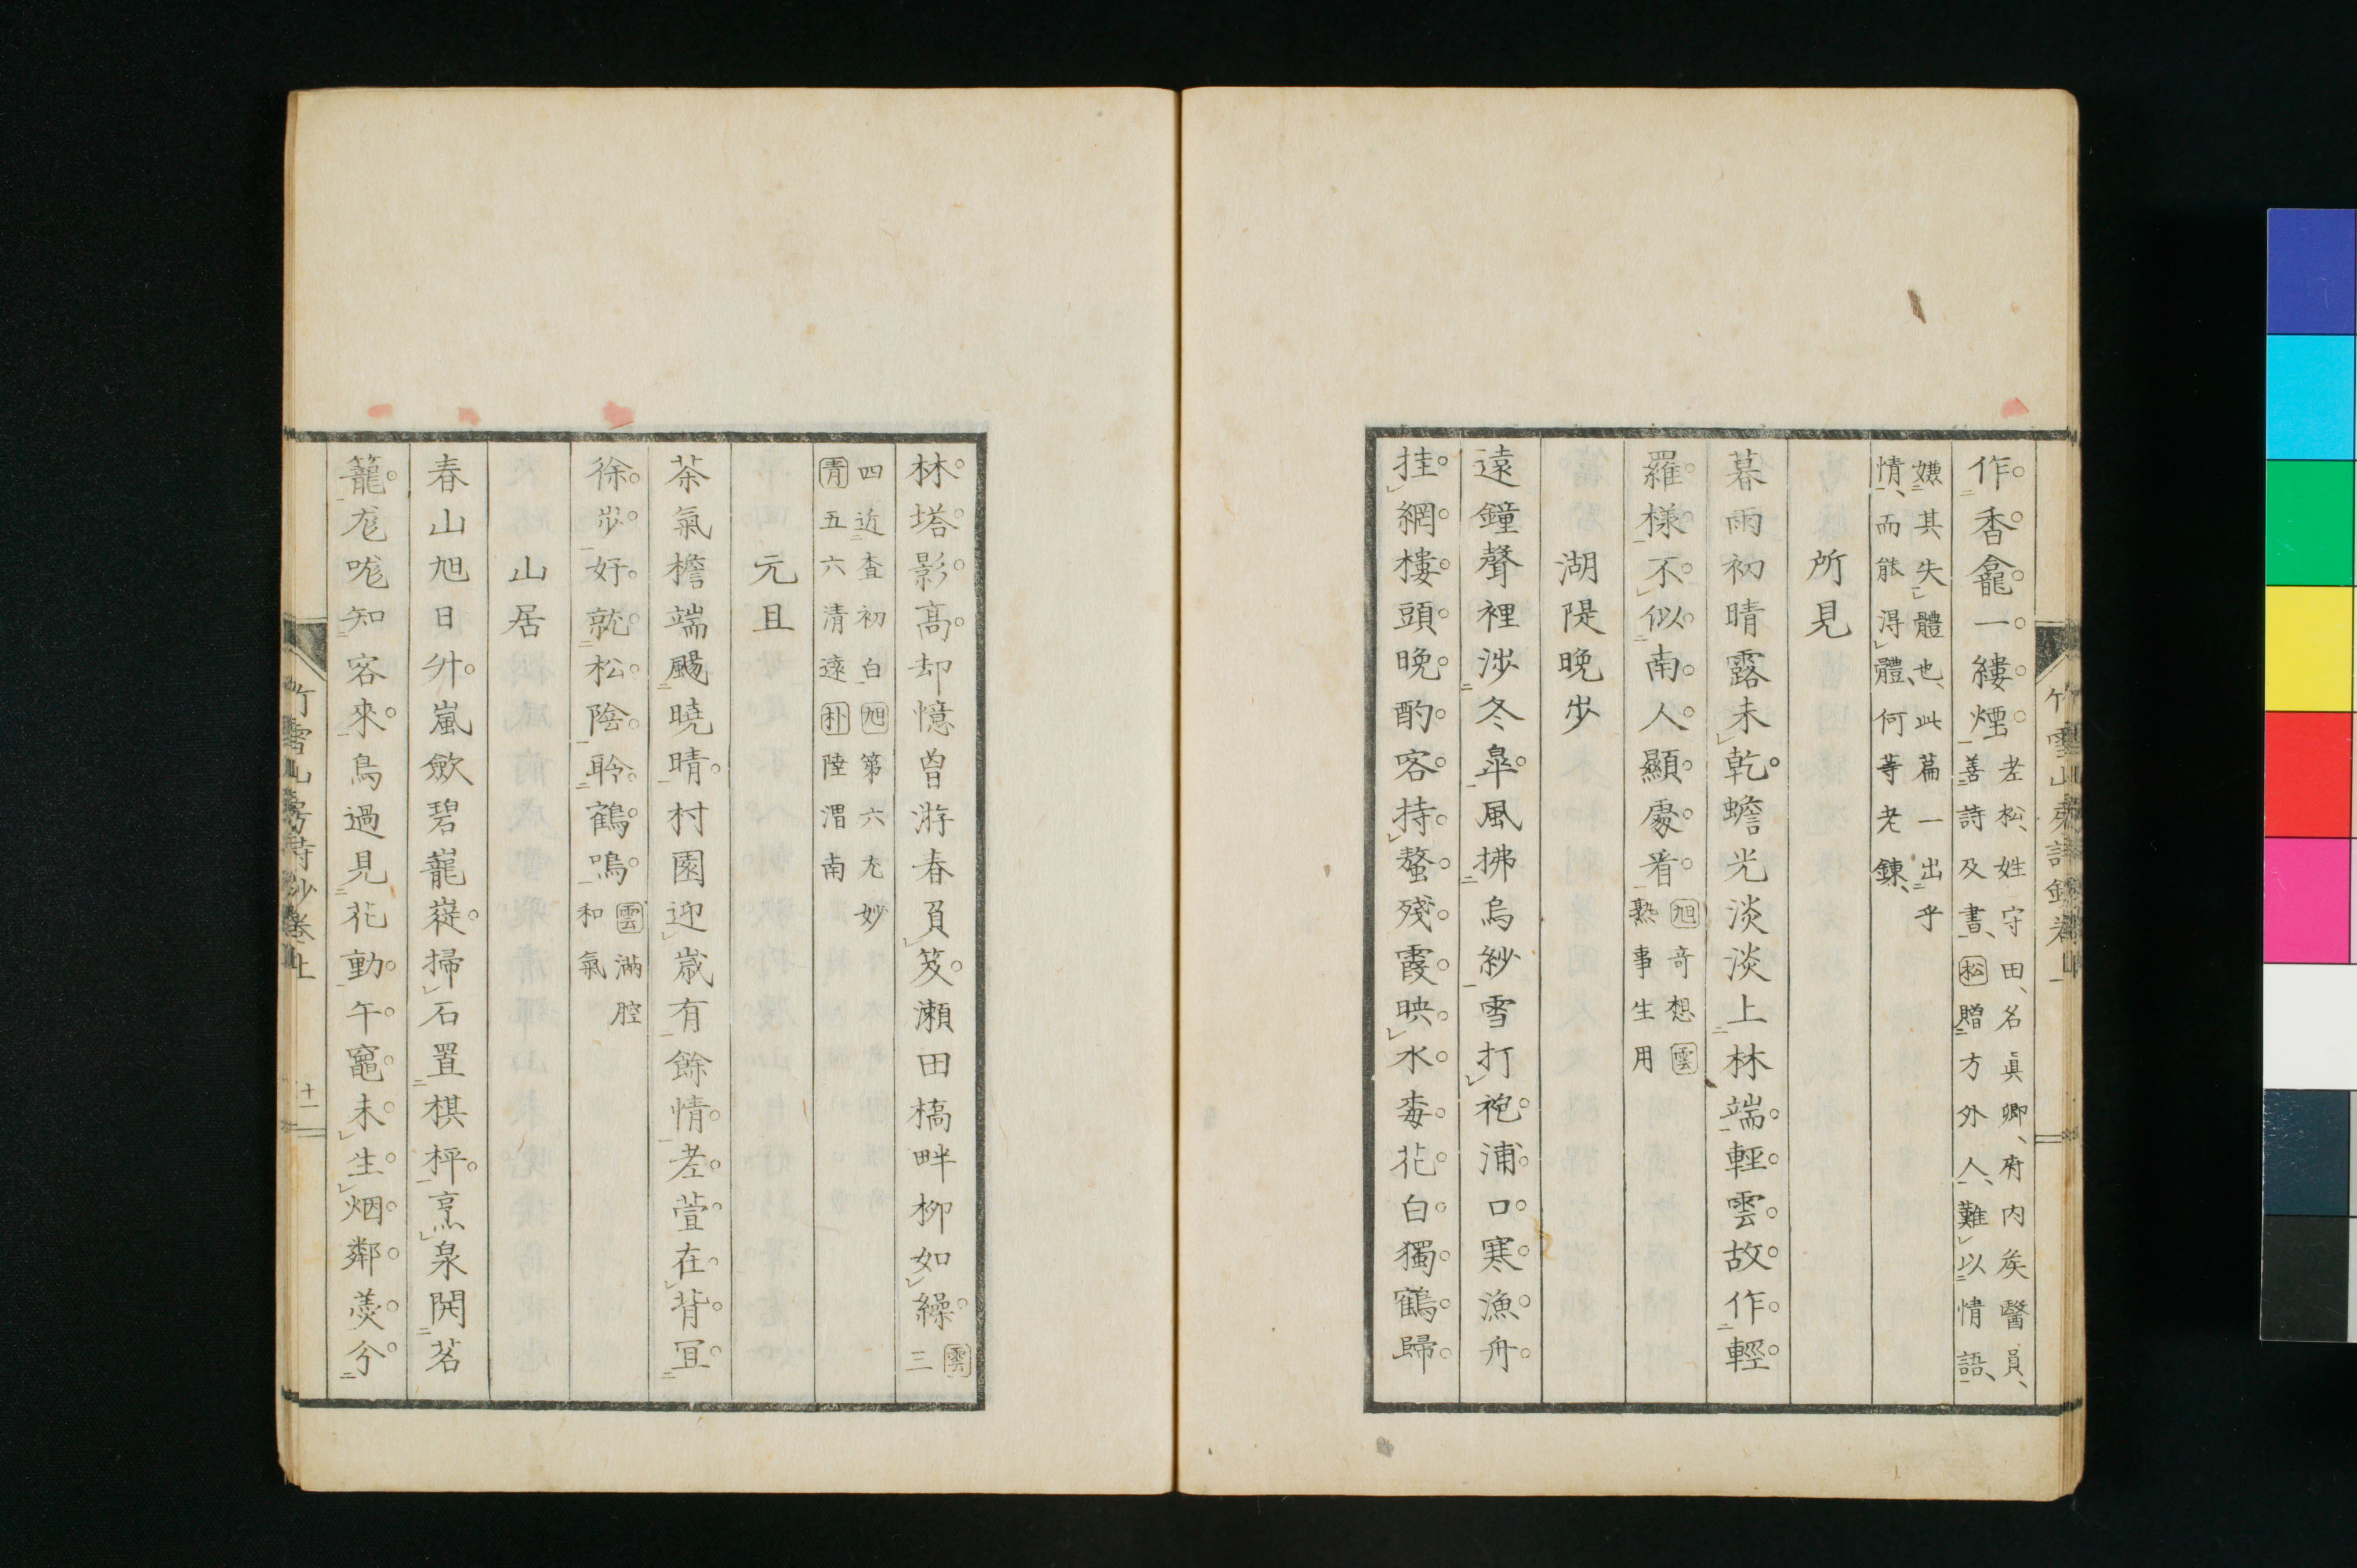 作香龕一縷煙老松、姓守田、名眞卿、府内矦醫員、
善詩及書、松贈方外人、難以情語、
嫌其失體也、此篇一出乎
情、而能得體、何等老鍊、
所見
暮雨初晴露未乾蟾光淡淡上林端輕雲故作輕
羅様不似南人顯處看旭奇想雲
熟事生用
湖隄晩步
遠鐘聲裡渉冬皐風拂烏紗雪打袍浦口寒漁舟
挂網樓頭晩酌客持螯殘霞映水毎花白獨鶴歸
林塔影高却憶曾游春負笈瀬田橋畔柳如繰雲三
四近査初白旭第六尤妙
青五六清遠朴陸渭南
元旦
茶氣檐端颺曉晴村園迎歳有餘情老萱在背宜
徐步好就松陰聆鶴鳴雲滿腔
和氣
山居
春山旭日升嵐歛碧巃嵸掃石置棋枰烹泉開茗
籠尨吠知客來鳥過見花動午竈未生烟鄰羮分
竹雪山房詩鈔卷上
十一